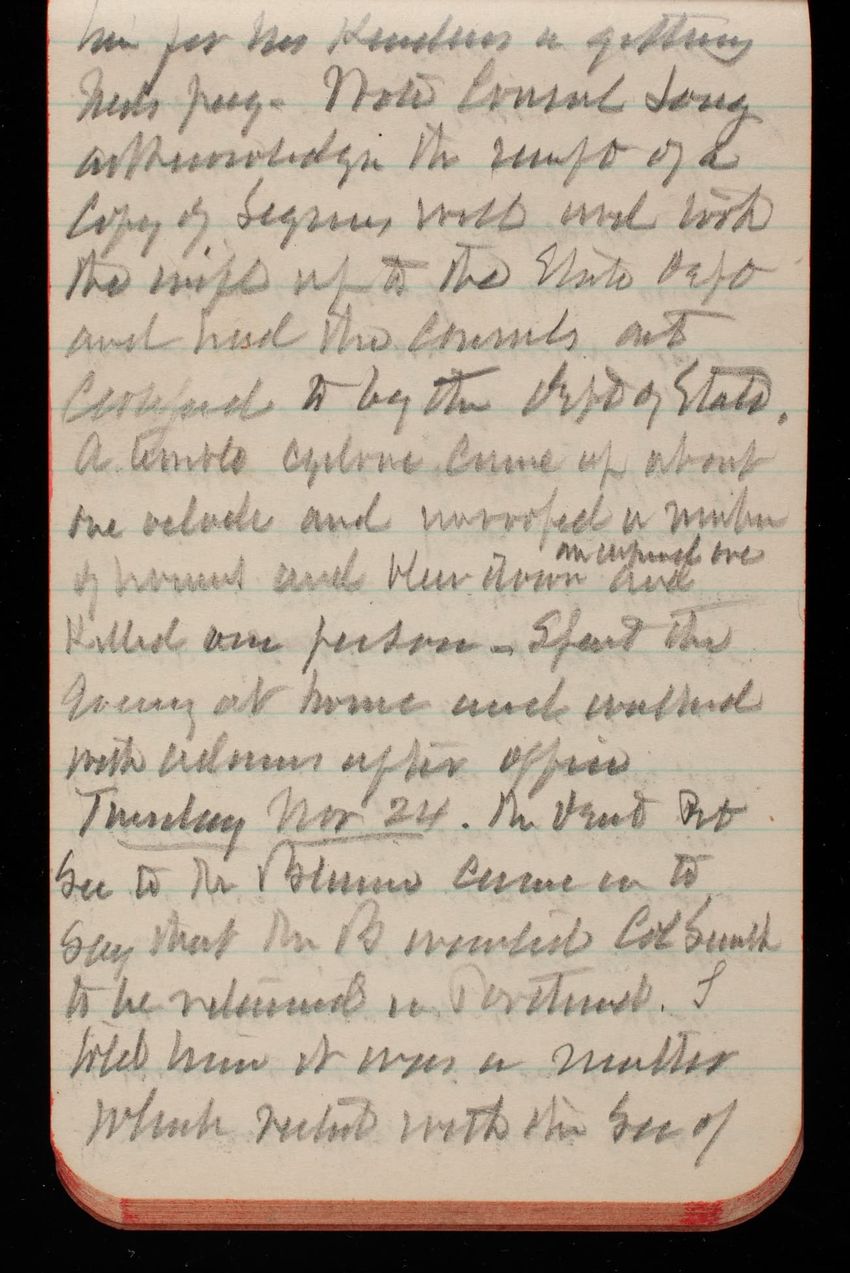 him for his kindness in getting
Wrote Consul Long
acknowledging the receipt of a
Copy of Segnius will and took
the wife up to the State Dept
and had the Consuls act
Certified to by the Dept of State.
A terrible cyclone came up about
one oclock and unroofed a number
of houses and blew down an unfinished one and
Killed one person - Spent the
Evening at home and walked
with Adams after office
Tuesday Nov 24. The
Sec to Mr Blaine came in to
Say that Mr B wanted Col Smith
to be retained in Portland. I
told him it was a matter
which rested with the Sec of